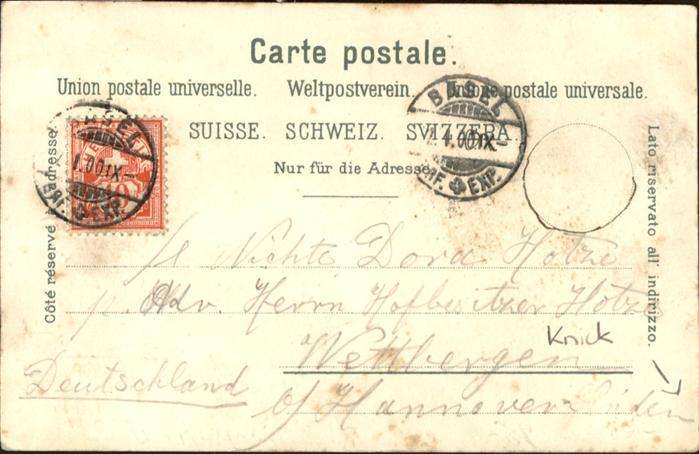 Carte postale.
Union postale universelle. Weltpostverein. Unione postale universale.
SUISSE. SCHWEIZ. SVIZZERA.
Nur für die Adresse
Côté réservé à l'adresse.
Lato riservato all' indirizzo.
BASEL
1.00.IX-
BRF. EXP.
BASEL
1.00.IX-
BRF. EXP.
10
Nichte Dora Hotze
p. Adr. Herrn Hofbesitzer Hotze
Knick
Wettbergen
Deutschland
b/ Hannover Linden